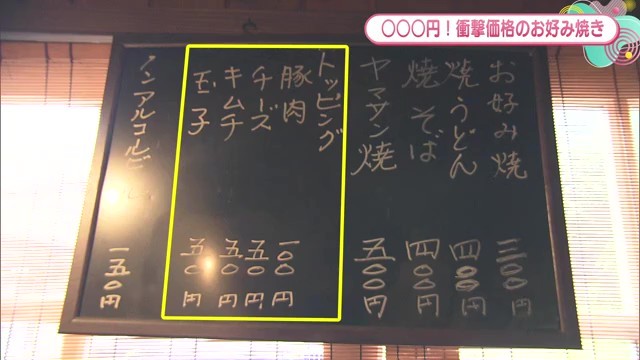 ○○○円！衝撃価格のお好み焼き
お好み焼 三〇〇円
焼うどん 四〇〇円
焼そば 四〇〇円
ヤマサン焼 五〇〇円
トッピング
豚肉 一〇〇円
チーズ 五〇円
キムチ 五〇円
玉子 五〇円
ノンアルコールビール 一五〇円